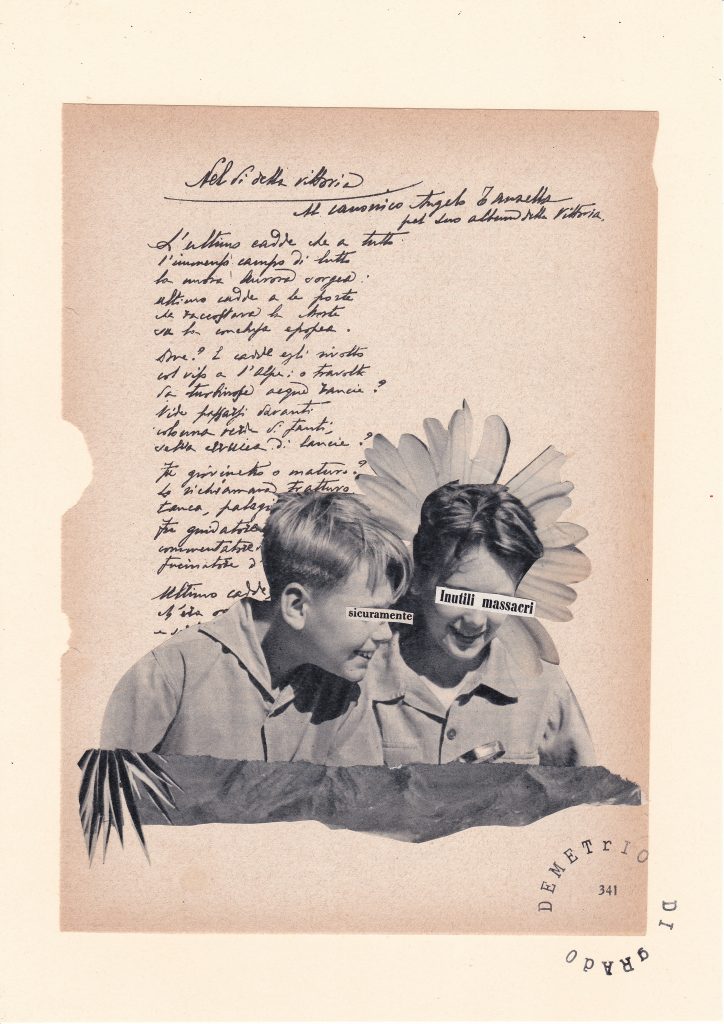 Nel dì della vittoria
Al canonico Angelo
pel suo album della Vittoria.
L'ultimo cadde che a tutto
l'immenso campo di lutto
la nuova Aurora sorgea:
ultimo cadde a le porte
che raccostava la Morte
su la conchiusa epopea.
Dove? E cadde egli rivolto
col viso a l'Alpe: o travolto
da turbinose acque
Vide passarsi davanti
colonna di fanti,
selva di lancie?
Fu giovinetto o maturo?
Lo richiamava
fu guidatore
commentatore
fucinatore d
Ultimo cadde
sicuramente
Inutili massacri
DEMETrIO
341
DI gRAdO